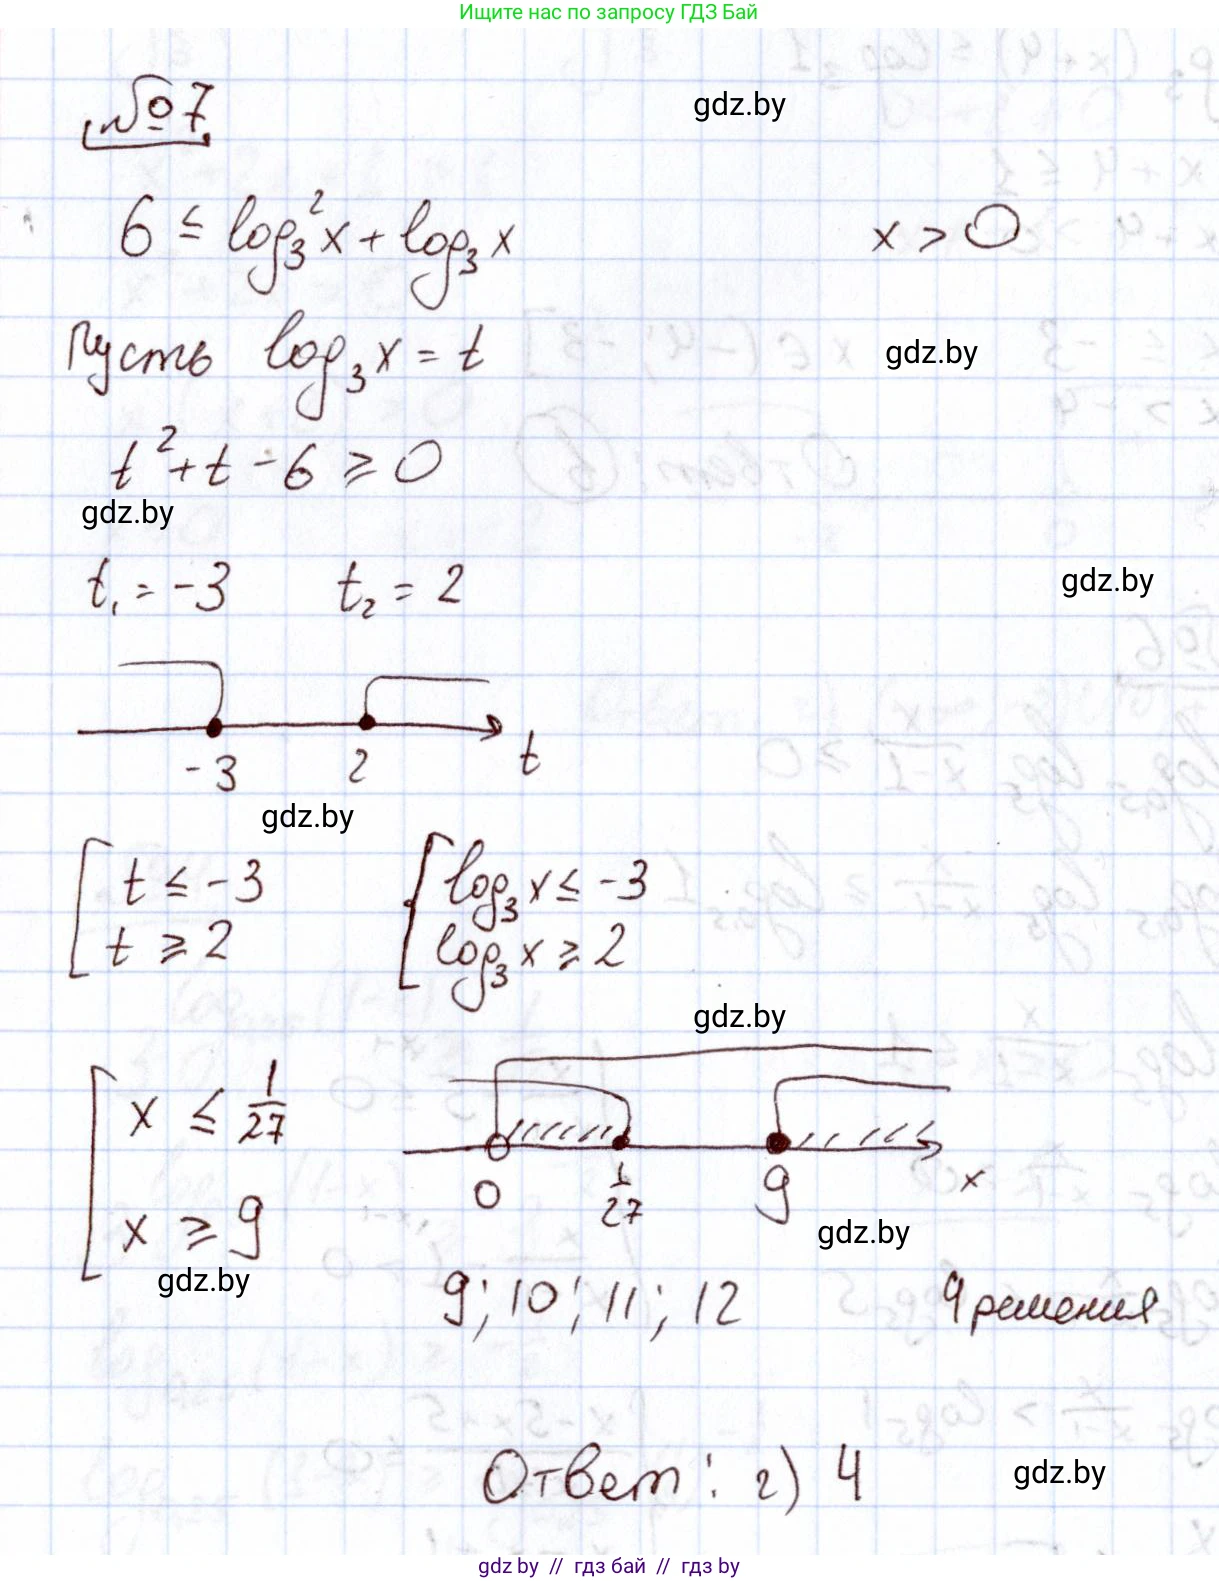 Ищите нас по запросу ГДЗ Бай
№7
gdz.by
6 ≤ log₃²x + log₃x
x > 0
Пусть log₃x = t
gdz.by
t² + t - 6 ≥ 0
gdz.by
t₁ = -3 t₂ = 2
gdz.by
-3 2 t
gdz.by
[ t ≤ -3 [ log₃x ≤ -3
t ≥ 2 log₃x ≥ 2
gdz.by
[ x ≤ 1/27
0 1/27 9 x
x ≥ 9
gdz.by
gdz.by
9; 10; 11; 12 4 решения
Ответ: г) 4
gdz.by
gdz by // гдз бай // гдз by